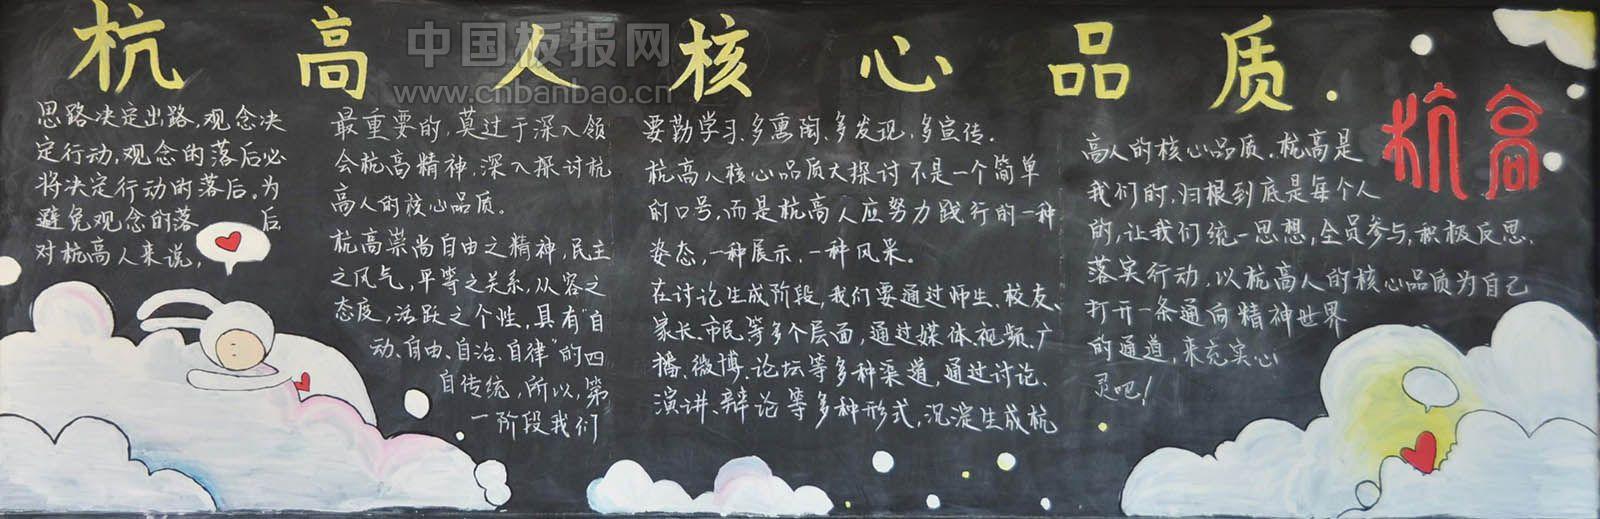 杭高人核心品质
中国板报网
www.cnbanbao.cn
杭高
思路决定出路,观念决
定行动,观念的落后必
将决定行动的落后。为
避免观念的落后
对杭高人来说,
最重要的,莫过于深入领
会杭高精神,深入探讨杭
高人的核心品质。
杭高崇尚自由之精神,民主
之风气,平等之关系,从容之
态度,活跃之个性,具有“自
动、自由、自治、自律”的四
自传统,所以,第
一阶段我们
要勤学习、多惠阅、多发现、多宣传。
杭高人核心品质大探讨不是一个简单
的口号,而是杭高人应努力践行的一种
姿态,一种展示,一种风采。
在讨论生成阶段,我们要通过师生、校友、
家长、市民等多个层面,通过媒体、视频、广
播、微博、论坛等多种渠道,通过讨论、
演讲、辩论等多种形式,沉淀生成杭
高人的核心品质。杭高是
我们的,归根到底是每个人
的,让我们统一思想,全员参与,积极反思、
落实行动,以杭高人的核心品质为自己
打开一条通向精神世界
的通道,来充实心
灵吧!